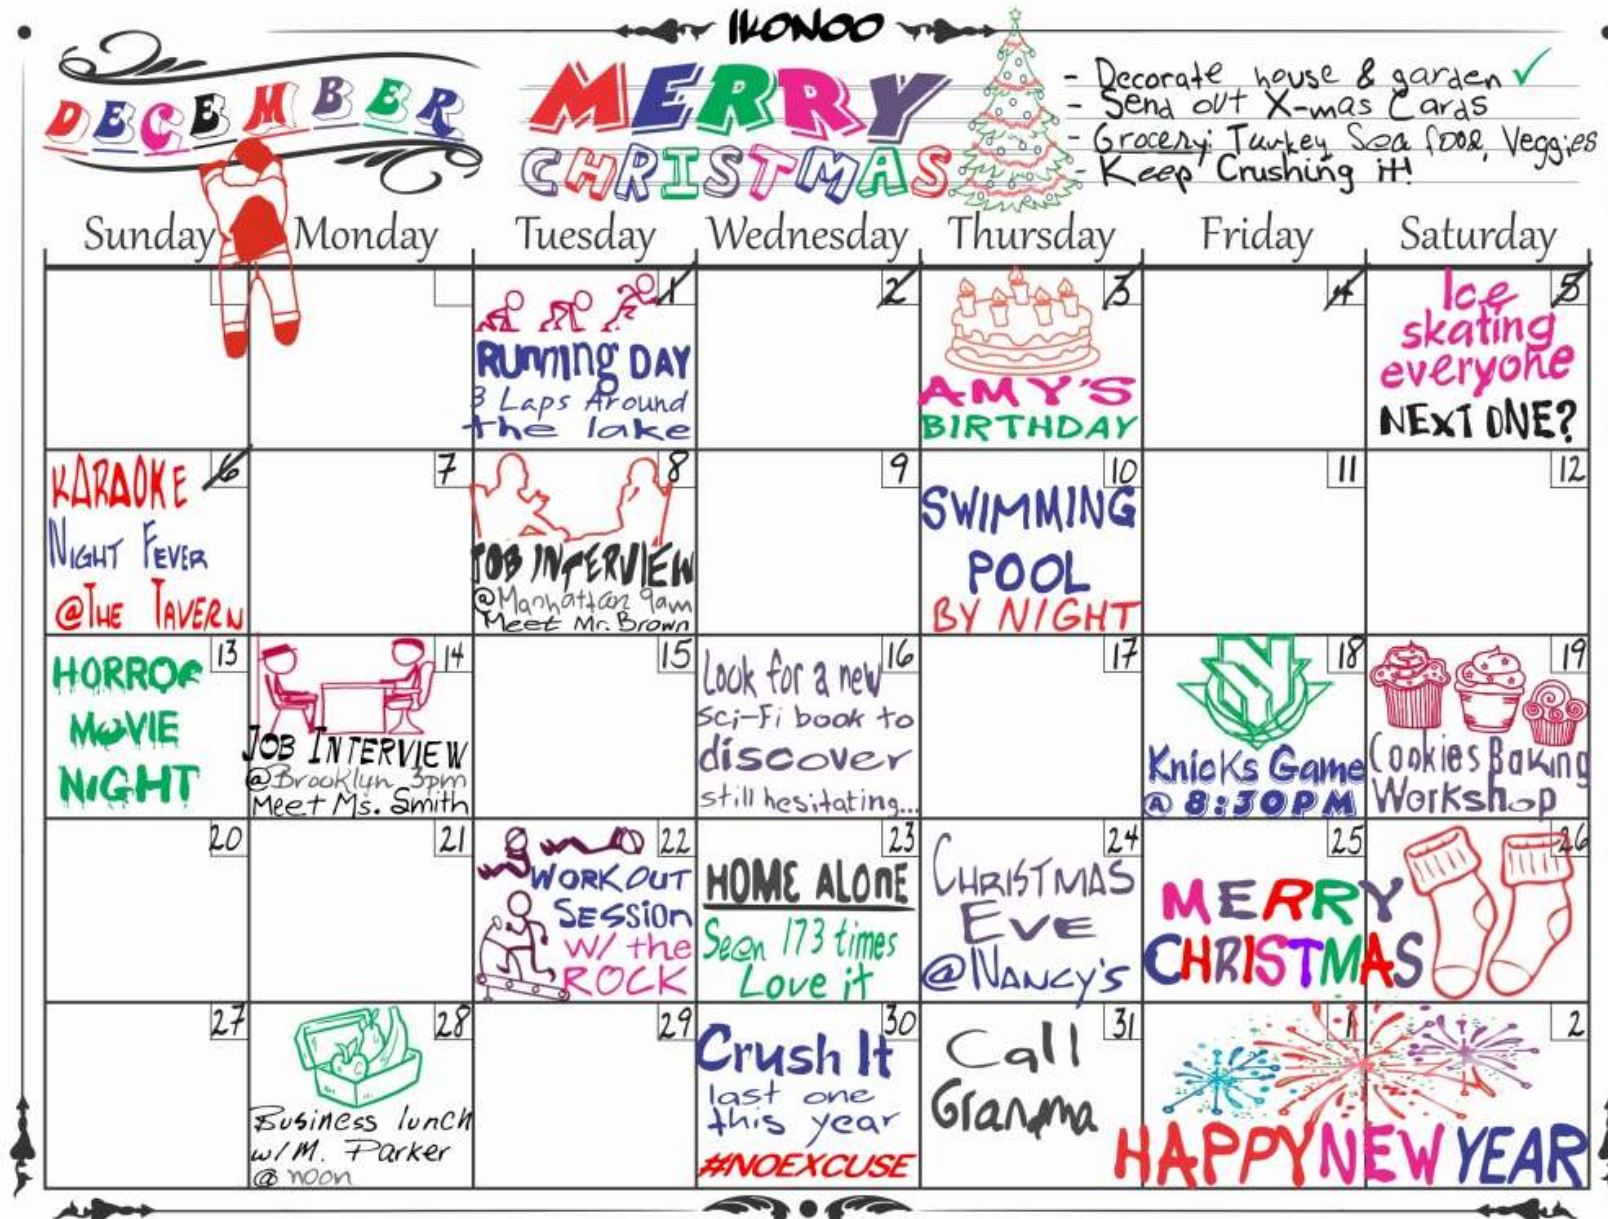 IKONOO
DECEMBER
MERRY
CHRISTMAS
- Decorate house & garden ✓
- Send out X-mas Cards
- Grocery: Turkey Sea food, Veggies
- Keep Crushing it!
Sunday Monday Tuesday Wednesday Thursday Friday Saturday
1
RUnning DAY
3 Laps Around
the lake
2
3
AMY'S
BIRTHDAY
4
5
Ice
skating
everyone
NEXT ONE?
6
KARAOKE
NIGHT FEVER
@THE TAVERN
7
8
JOB INTERVIEW
@Manhattan 9am
Meet Mr. Brown
9
10
SWIMMING
POOL
BY NIGHT
11
12
13
HORROR
MOVIE
NIGHT
14
JOB INTERVIEW
@Brooklyn 3pm
Meet Ms. Smith
15
16
Look for a new
Sci-Fi book to
discover
still hesitating...
17
18
N
Knicks Game
@ 8:30PM
19
Cookies Baking
Workshop
20
21
22
WORKOUT
SESSION
W/ the
ROCK
23
HOME ALONE
Seen 173 times
Love it
24
CHRISTMAS
EVE
@NANCY'S
25
MERRY
CHRISTMAS
26
27
28
Business lunch
w/ M. Parker
@ noon
29
30
Crush It
last one
this year
#NOEXCUSE
31
Call
Granma
1
2
HAPPY NEW YEAR